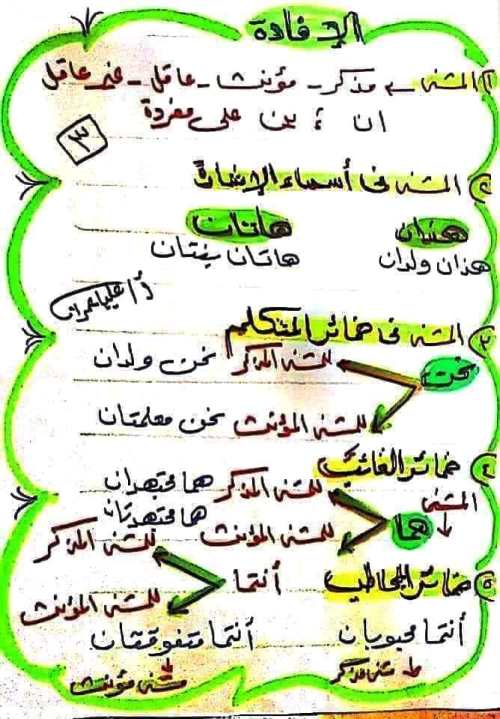 الإفادة
١) المثنى ← مذكر - مؤنث - عاقل - غير عاقل
ان ؛ ين على مفردة
٣
٢) المثنى فى أسماء الإشارة
هذان هاتان
هذان ولدان هاتان بنتان
٣) المثنى فى ضمائر المتكلم
نحن للمثنى المذكر نحن ولدان
للمثنى المؤنث نحن معلمتان
٤) ضمائر الغائب
المثنى هما للمثنى المذكر هما مجتهدان
للمثنى المؤنث هما مجتهدتان
٥) ضمائر المخاطب أنتما للمثنى المذكر
للمثنى المؤنث
أنتما محبوبان أنتما متفوقتان
مثنى مذكر مثنى مؤنث